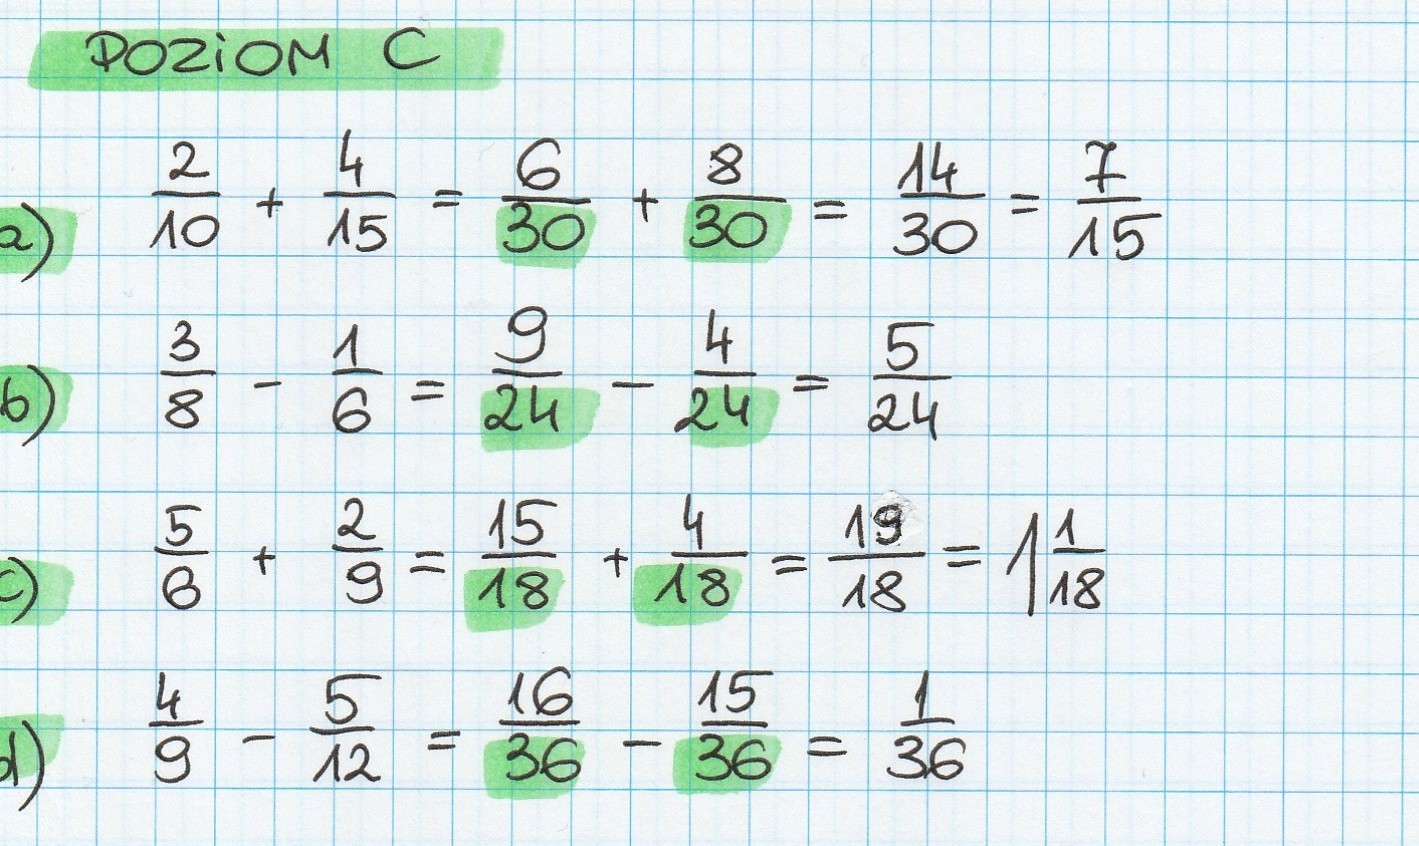 POZIOM C
a) 2/10 + 4/15 = 6/30 + 8/30 = 14/30 = 7/15
b) 3/8 - 1/6 = 9/24 - 4/24 = 5/24
c) 5/6 + 2/9 = 15/18 + 4/18 = 19/18 = 1 1/18
d) 4/9 - 5/12 = 16/36 - 15/36 = 1/36